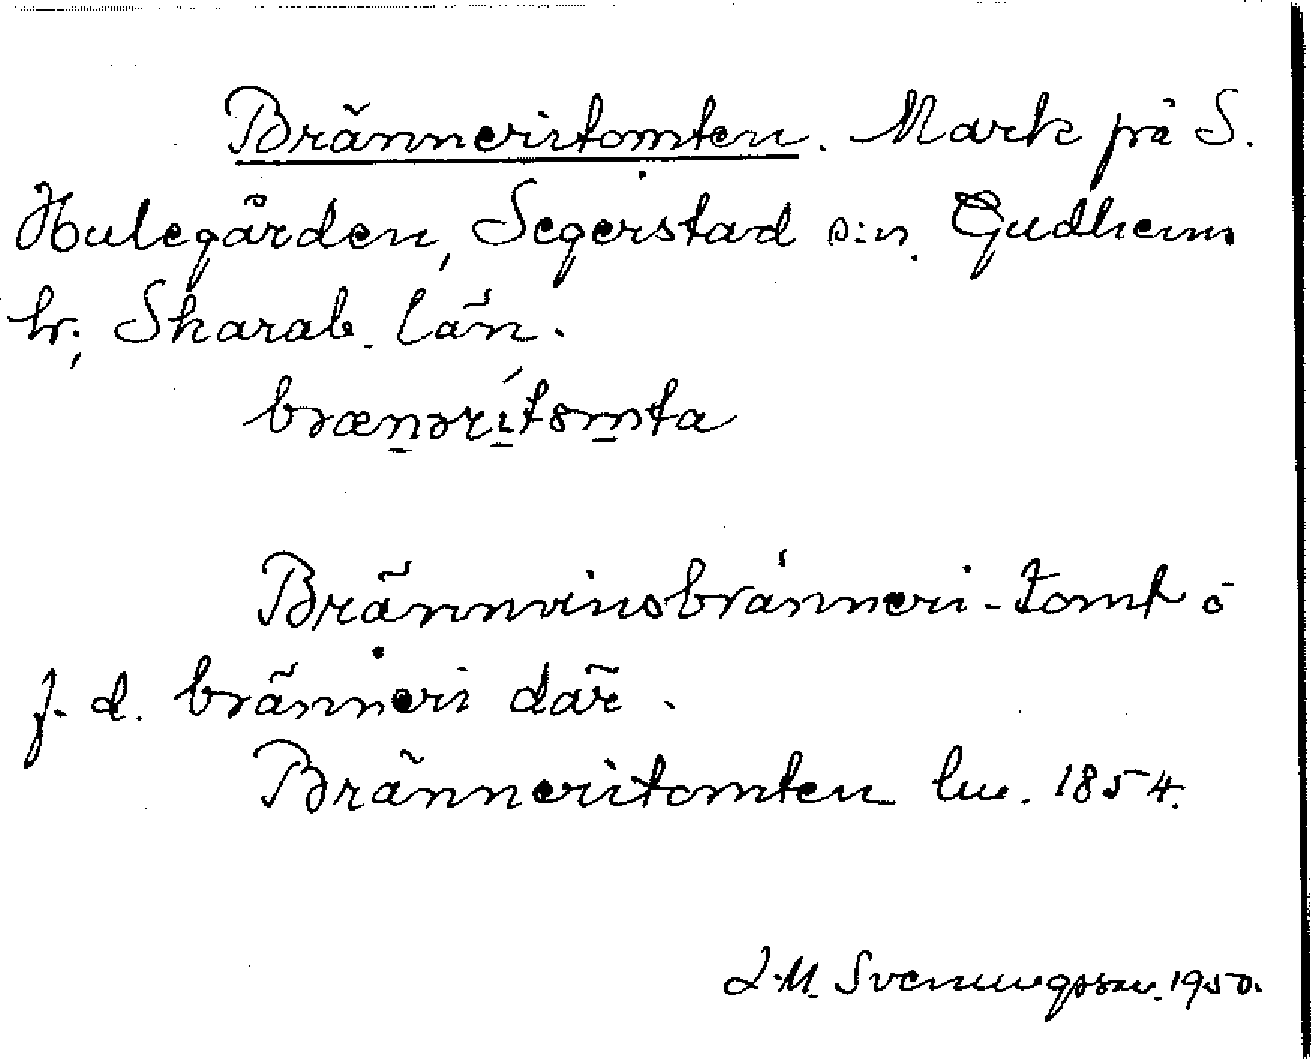 Bränneritomten. Mark på S.
Hulegården, Segerstad s:n, Gudhems
hr, Skarab. län.
brænərítomta
Brännvinsbränneri-tomt o
f. d. bränneri där.
Bränneritomten lm. 1854.
L.M. Svenungsson. 1950.